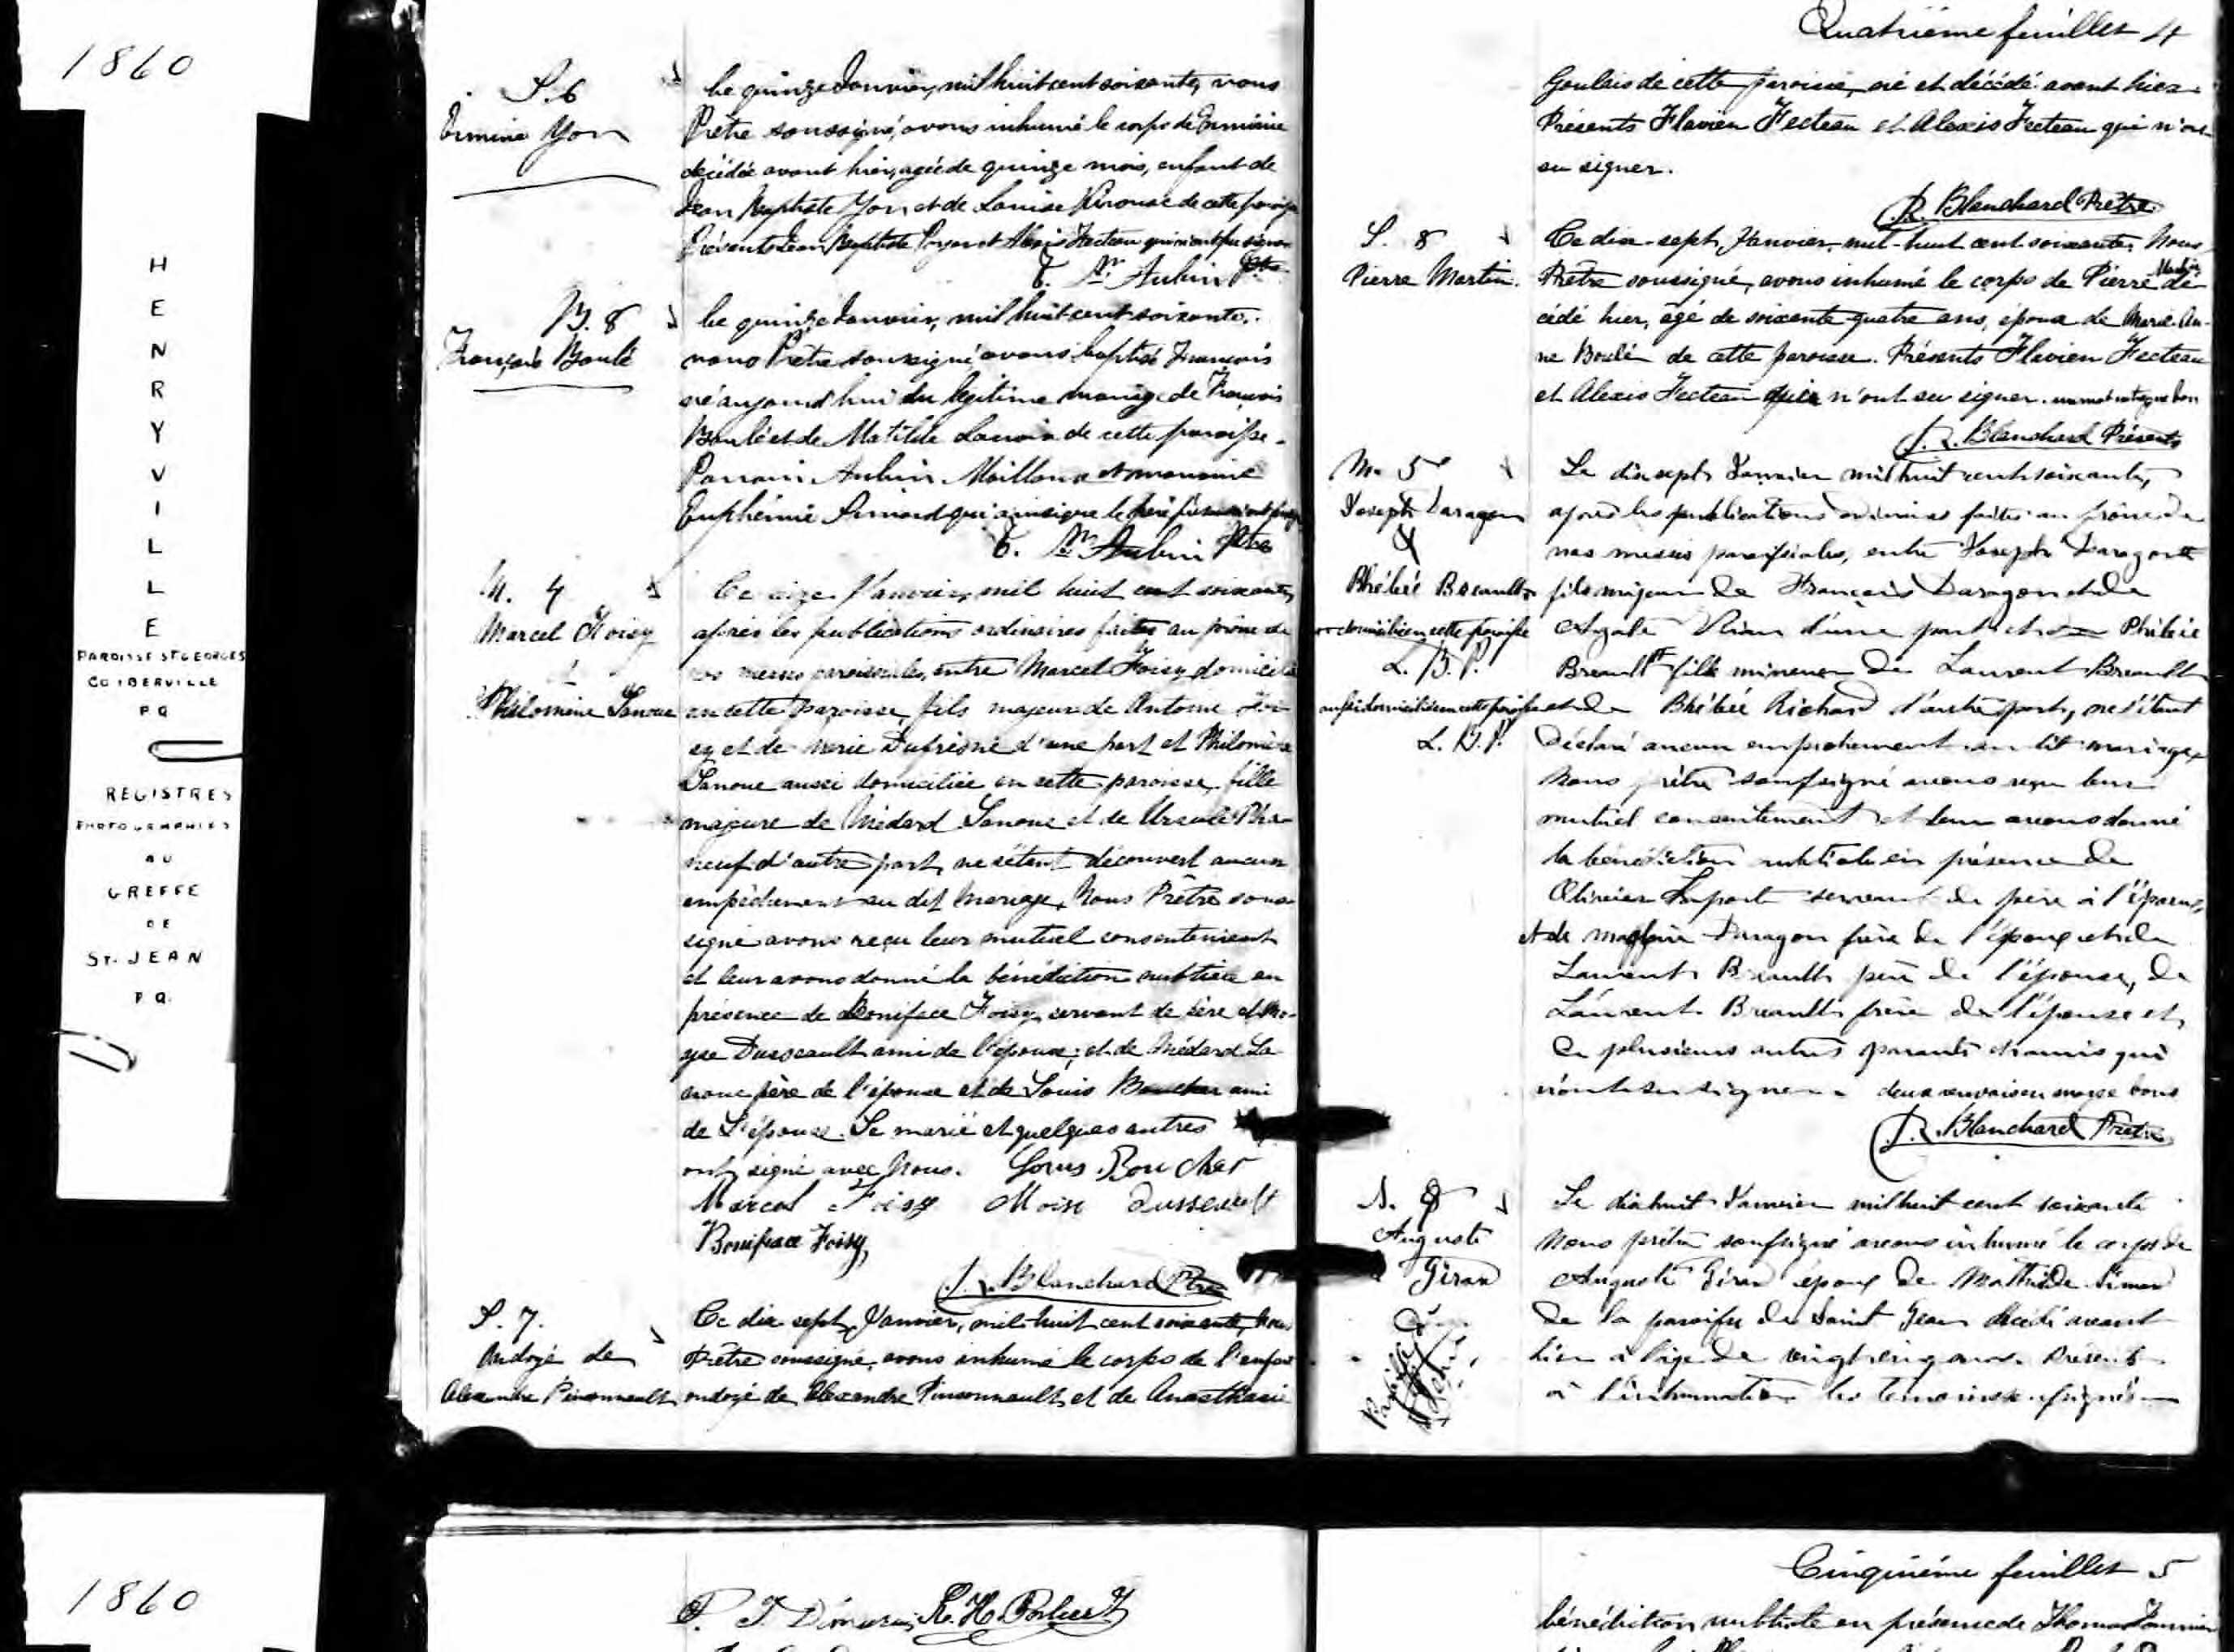 1860
HENRYVILLE
PAROISSE ST GEORGES
CO IBERVILLE
P Q
REGISTRES
PHOTOGRAPHIES
AU
GREFFE
DE
ST. JEAN
P Q.
S. 6
Ermine Yon
Le quinze Janvier, mil huit cent soixante, nous
Prêtre soussigné, avons inhumé le corps de
décédée avant hier, agée de quinze mois, enfant de
Jean Baptiste Yon et de Louise de cette paroisse
Présents Jean Baptiste et Alexis Fecteau qui n'ont pu signer
St Aubin Ptre
B. 8
François Boulé
Le quinze Janvier, mil huit cent soixante,
nous Prêtre soussigné avons baptisé François
né aujourd'hui du légitime mariage de François
Boulé et de Matilde Lacroix de cette paroisse.
Parrain Aubin Mailloux et marraine
Euphémie qui
St Aubin Ptre
M. 4
Marcel Foisy
et
Philomène Lanoue
Ce seize Janvier, mil huit cent soixante,
après les publications ordinaires faites au prône de
nos messes paroissiales, entre Marcel Foisy domicilié
en cette paroisse, fils majeur de Antoine Foi-
sy et de Marie Dufresne d'une part et Philomène
Lanoue aussi domiciliée en cette paroisse, fille
majeure de Médard Lanoue et de Ursule Pha-
neuf d'autre part, ne s'étant découvert aucun
empêchement au dit mariage, Nous Prêtre sous-
signé avons reçu leur mutuel consentement
et leur avons donné la bénédiction nuptiale en
présence de Boniface Foisy servant de père et Mo-
yse Dusseault ami de l'époux; et de Médard La-
noue père de l'épouse et de Louis Boucher ami
de l'épouse. Le marié et quelques autres
ont signé avec Nous. Louis Boucher
Marcel Foisy Moise Dusseault
Boniface Foisy
Blanchard Ptre
S. 7.
Ondoyé de
Alexandre Pinsonnault
Ce dix sept, Janvier, mil-huit cent soixante, Nous
Prêtre soussigné, avons inhumé le corps de l'enfant
ondoyé de Alexandre Pinsonnault, et de Anasthasie
Quatrième feuillet 4
Goulais de cette paroisse, né et décédé avant hier.
Présents Flavien Fecteau et Alexis Fecteau qui n'ont
su signer.
Blanchard Prêtre
S. 8
Pierre Martin.
Ce dix-sept, Janvier, mil-huit cent soixante, Nous
Prêtre soussigné, avons inhumé le corps de Pierre Martin dé-
cédé hier, agé de soixante quatre ans, époux de Marie-An-
ne Boulé de cette paroisse. Présents Flavien Fecteau
et Alexis Fecteau qui n'ont su signer.
Blanchard
M. 5
Joseph Daragon
&
Phébée Breault
domicilié en cette paroisse
L. B. P.
aussi domiciliée en cette paroisse
L. B. P.
Le dix sept Janvier mil huit cent soixante,
après les publications ordinaires faites au prône de
nos messes paroissiales, entre Joseph Daragon
fils majeur de François Daragon et de
Agate d'une part et Phébée
Breault fille mineure de Laurent Breault
et de Phébée Richard d'autre part, ne s'étant
déclaré aucun empêchement au dit mariage,
Nous prêtre soussigné avons reçu leur
mutuel consentement et leur avons donné
la bénédiction nuptiale en présence de
Olivier servant de père à l'époux,
et de Magloire Daragon frère de l'époux et de
Laurent Breault père de l'épouse, de
Laurent Breault frère de l'épouse et
de plusieurs autres parents et amis qui
n'ont su signer. deux renvois en marge bons
Blanchard Prêtre
S.
Auguste
Giron
Le dix huit Janvier mil huit cent soixante
Nous prêtre soussigné avons inhumé le corps de
Auguste époux de Mathilde Simard
de la paroisse de Saint Jean décédé avant
hier à l'âge de vingt cinq ans. Présents
à l'inhumation les témoins soussignés
1860
Cinquième feuillet 5
bénédiction nuptiale en présence de Thomas